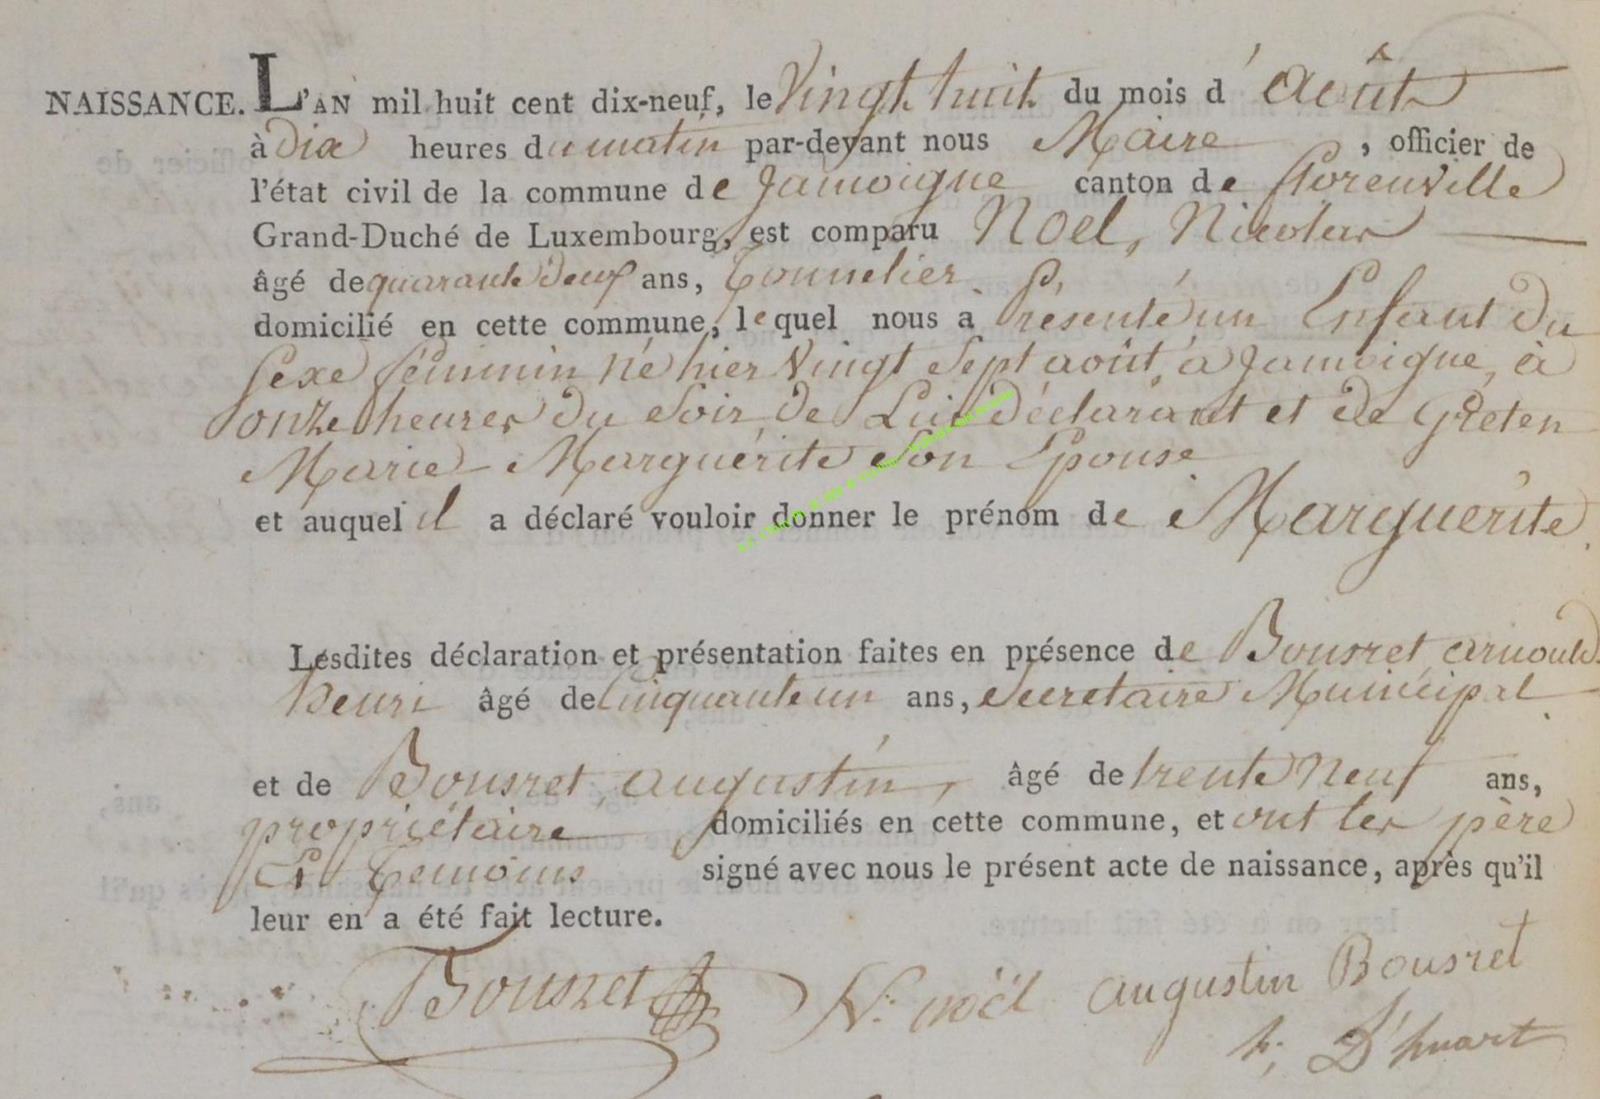 NAISSANCE. L'AN mil huit cent dix-neuf, le Vingt huit du mois d'août
à dix heures du matin par-devant nous Maire, officier de
l'état civil de la commune de Jamoigne canton de florenville
Grand-Duché de Luxembourg, est comparu Noel, Nicolas
âgé de quarante deux ans, Tonnelier
domicilié en cette commune, lequel nous a Présenté un Enfant Du
Sexe féminin né hier Vingt Sept août à Jamoigne, à
onze heures du Soir, de Lui déclarant et de Greten
Marie-Marguérite Son Epouse
et auquel il a déclaré vouloir donner le prénom de Marguérite.
Lesdites déclaration et présentation faites en présence de Bousret arnould
henri âgé de Cinquante un ans, Secretaire Municipal
et de Bousret augustin, âgé de trente Neuf ans,
propriétaire domiciliés en cette commune, et ont les père
Et Temoins signé avec nous le présent acte de naissance, après qu'il
leur en a été fait lecture.
Bousret N. noël augustin Bousret
h; D'huart